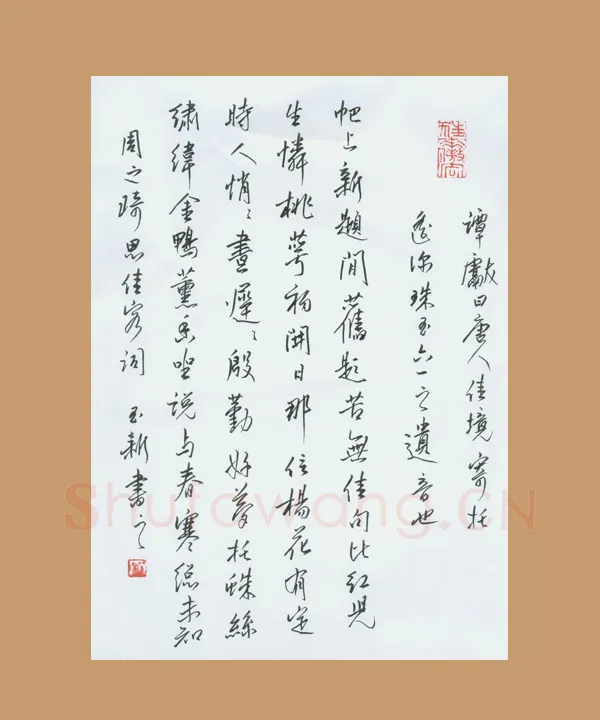 譚獻曰唐人佳境寄托
遙深珠玉六一之遺音也
帊上新題間舊題苦無佳句比紅兒
生憐桃萼初開日那信楊花有定
時人悄〻晝遲〻殷勤好夢托蛛絲
繡緯金鴨薰香坐説与春寒總未知
周之琦思佳客詞 玉新書之
Shufawang.CN